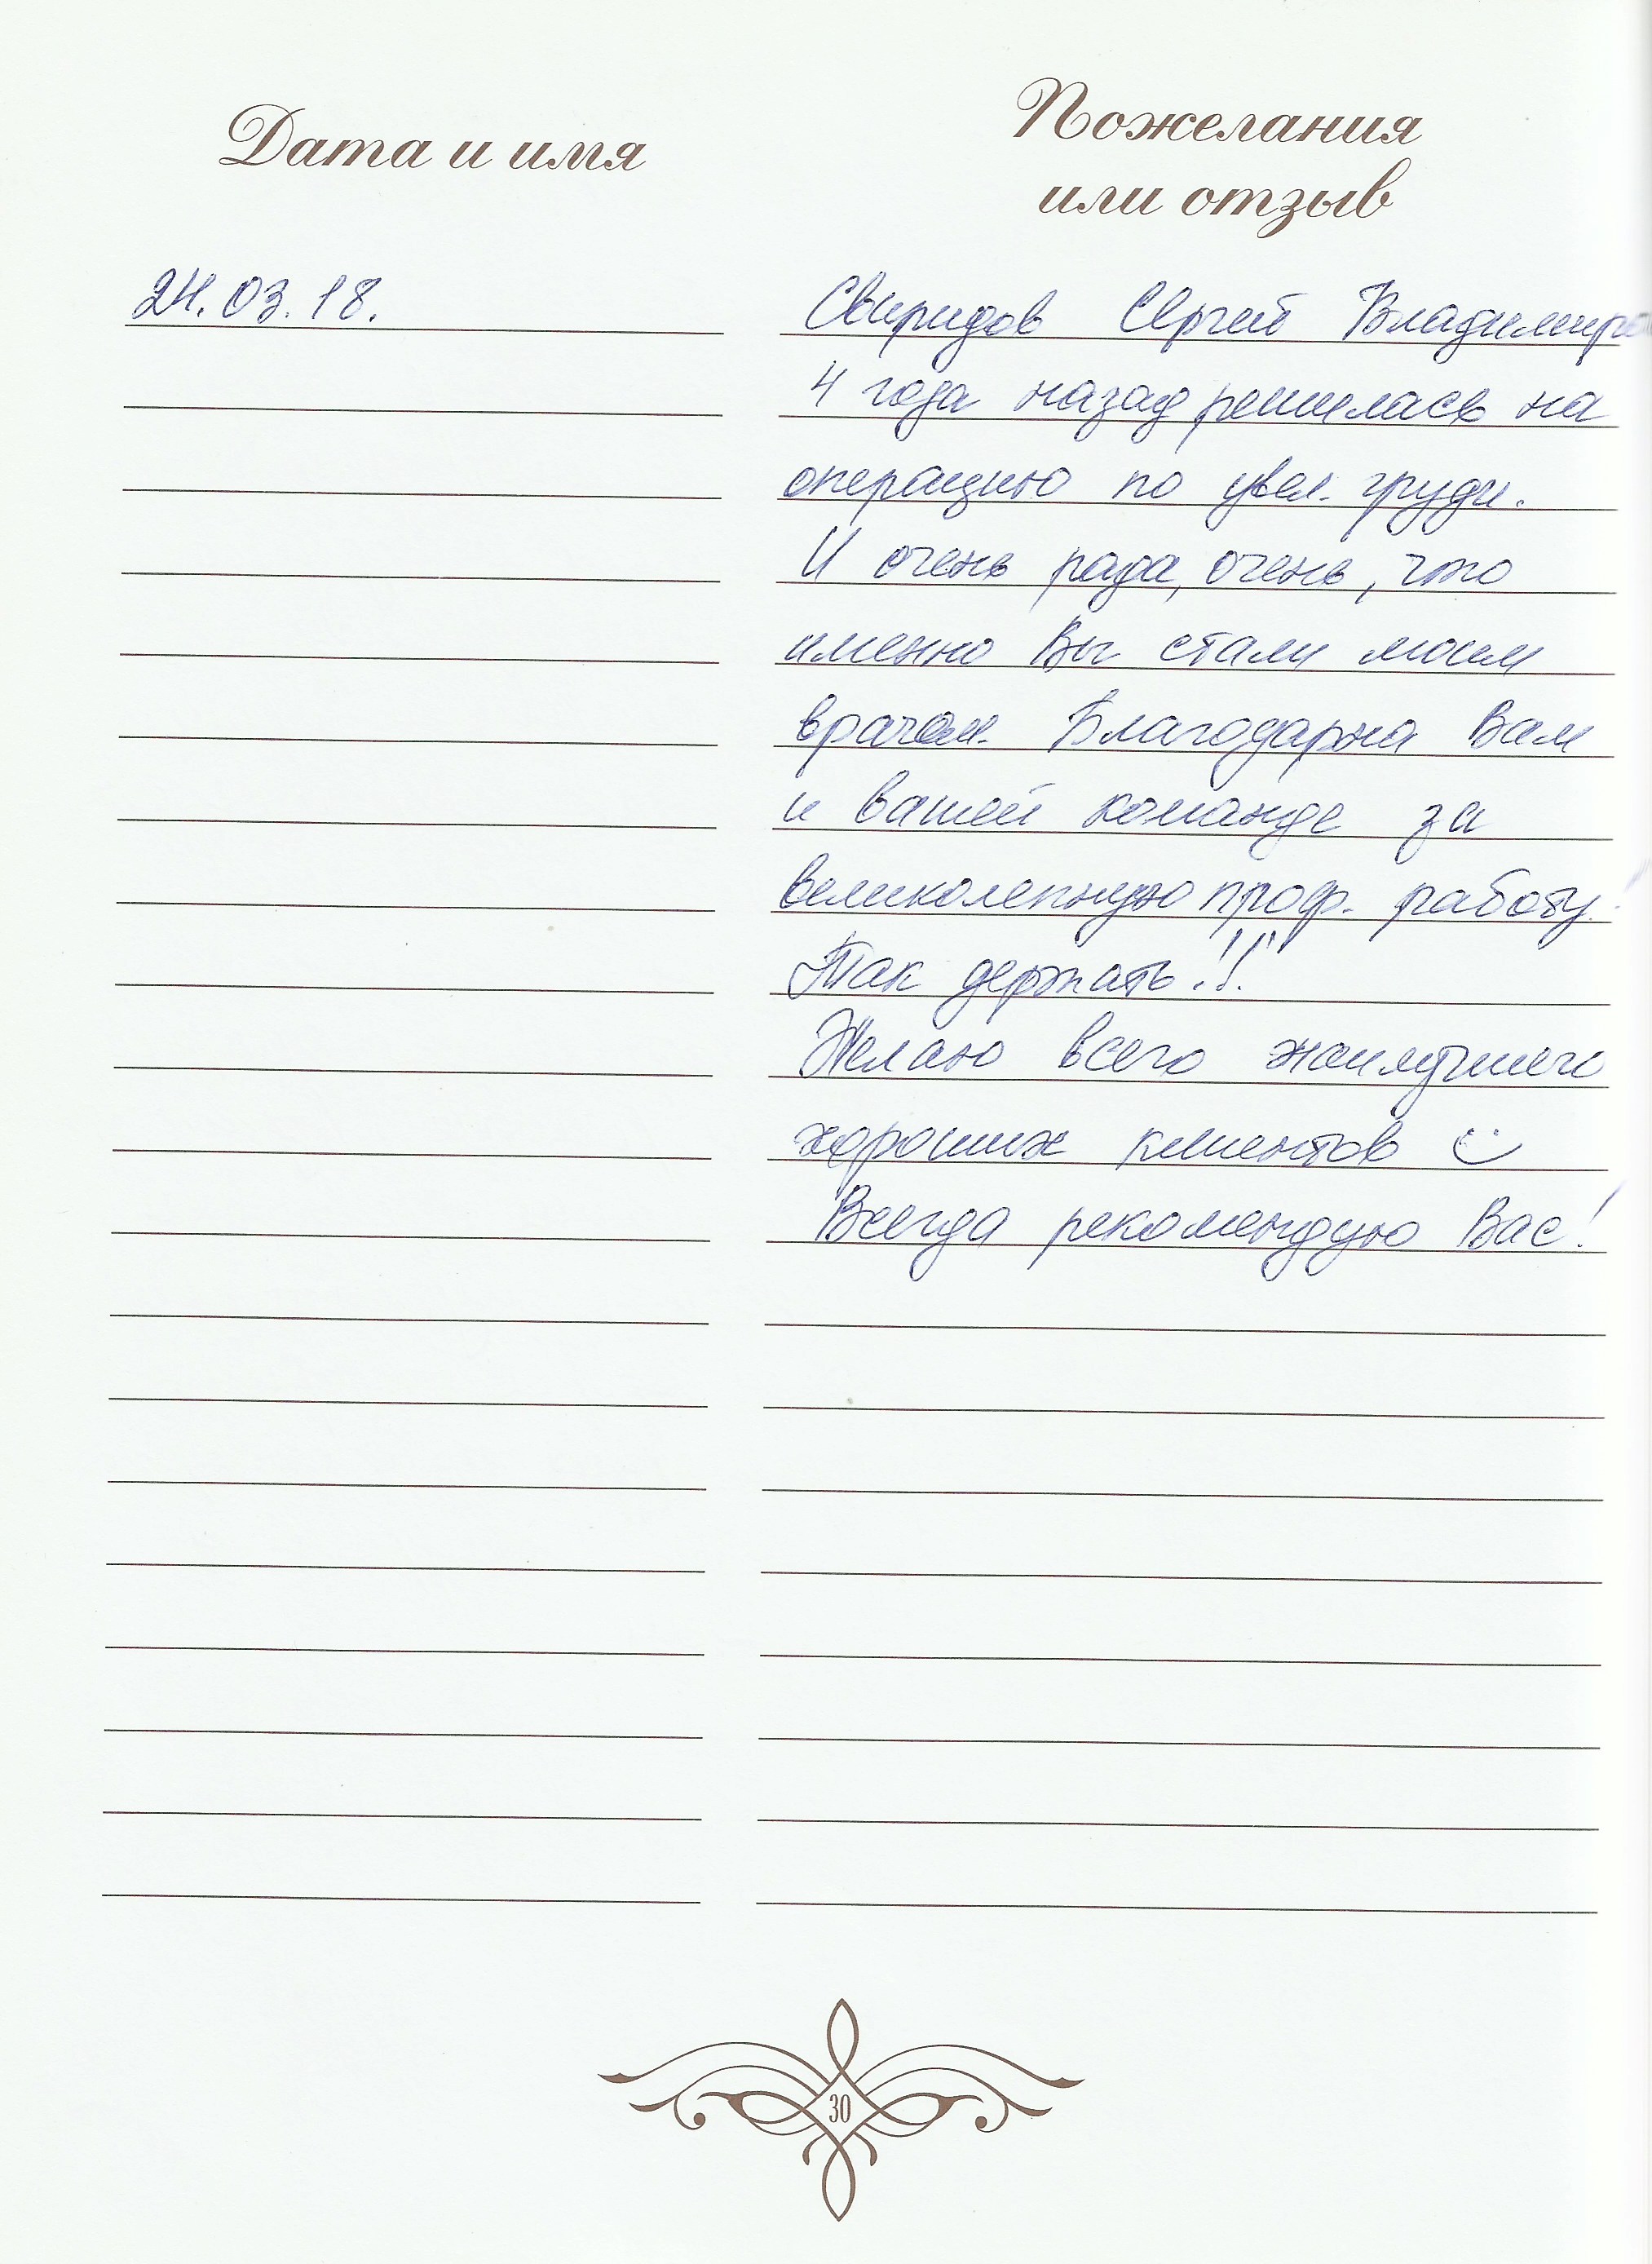 Дата и имя
Пожелания
или отзыв
24.03.18.
Свиридов Сергей
4 года назад решилась на
операцию по увел. груди.
И очень рада, очень, что
именно Вы стали моим
врачом. Благодарна Вам
и вашей команде за
великолепную проф. работу!
Так держать!!!
Желаю всего наилучшего
хороших клиентов
Всегда рекомендую Вас!
30